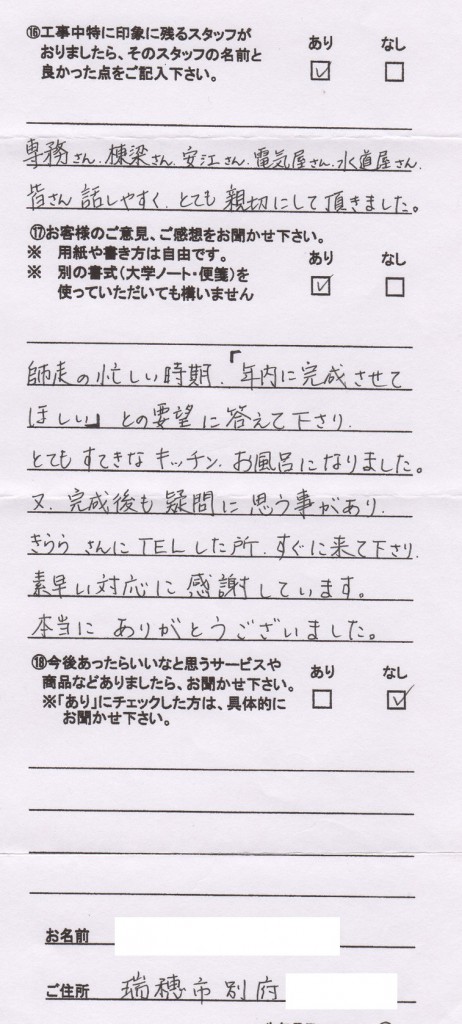 ⑯工事中特に印象に残るスタッフが
おりましたら、そのスタッフの名前と
良かった点をご記入下さい。
あり なし
専務さん、棟梁さん、安江さん、電気屋さん、水道屋さん、
皆さん 話しやすく、とても 親切にして頂きました。
⑰お客様のご意見、ご感想をお聞かせ下さい。
※ 用紙や書き方は自由です。
※ 別の書式(大学ノート・便箋)を
使っていただいても構いません
あり なし
師走の忙しい時期、「年内に完成させて
ほしい」との要望に答えて下さり、
とてもすてきなキッチン、お風呂になりました。
又、完成後も疑問に思う事があり、
きららさんにTELした所、すぐに来て下さり、
素早い対応に感謝しています。
本当に ありがとうございました。
⑱今後あったらいいなと思うサービスや
商品などありましたら、お聞かせ下さい。
※「あり」にチェックした方は、具体的に
お聞かせ下さい。
あり なし
お名前
ご住所 瑞穂市別府